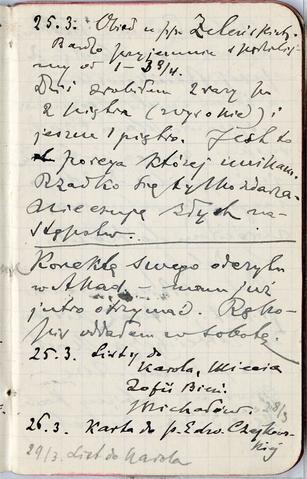 25.3. Obiad u pp. Zeleńskich.
Bardzo przyjemnie spędziliś-
my od 1 – 3 3/4.
Dziś zrobiłam 2 razy po
2 piętra (wysokie) i
jeszcze 1 piętro. Jest to
poręcz której unikam.
Rzadko się tylko zdarza.
Nie czuję złych na-
stępstw.
Korektę swego odczytu
w Akad. – mam już
jutro otrzymać. Ręko-
pis oddałam w sobotę.
25.3. Listy do
Karola, Miecia
Zofii Bieni.
Michałów. 28/3
26.3. Karta do p. Edw. Czajkow-
skiej
29/3. List do Karola